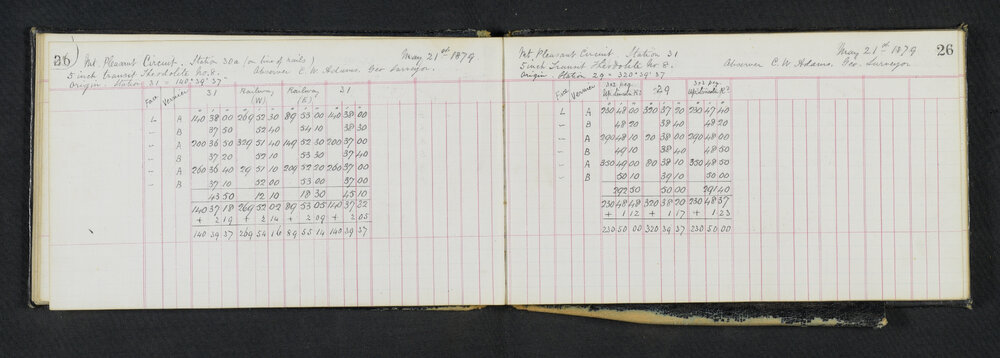 26)
Mt. Pleasant Circuit. Station 30a (on line of rails) May 21st 1879
5 inch Transit Theodolite No. 8. Observer C. W. Adams. Geo. Surveyor.
Origin Station 31 = 140° 39' 37"
Face Vernier 31 Railway (W) Railway (E) 31
° ' " ° ' " ° ' " ° ' "
L A 140 38 00 269 52 30 89 53 00 140 38 00
– B 37 50 52 40 54 10 38 30
– A 200 36 50 329 51 40 149 52 30 200 37 00
– B 37 20 52 10 53 30 37 40
– A 260 36 40 29 51 10 209 52 20 260 37 00
– B 37 10 52 00 53 00 37 00
43 50 12 10 18 30 45 10
140 37 18 269 52 02 89 53 05 140 37 32
+ 2 19 + 2 14 + 2 09 + 2 05
140 39 37 269 54 16 89 55 14 140 39 37
Mt Pleasant Circuit Station 31 May 21st 1879 26
5 inch Transit Theodolite No 8. Observer C. W. Adams. Geo. Surveyor
Origin Station 29 = 320° 39' 37"
Face Vernier 29
° ' " ° ' " ° ' "
L A 230 48 00 320 37 20 230 47 40
– B 48 20 38 40 48 20
– A 290 48 10 20 38 00 290 48 00
– B 49 10 38 40 48 50
– A 350 49 00 80 38 10 350 48 50
– B 50 10 39 10 50 00
292 50 50 00 291 40
230 48 48 320 38 20 230 48 37
+ 1 12 + 1 17 + 1 23
230 50 00 320 39 37 230 50 00